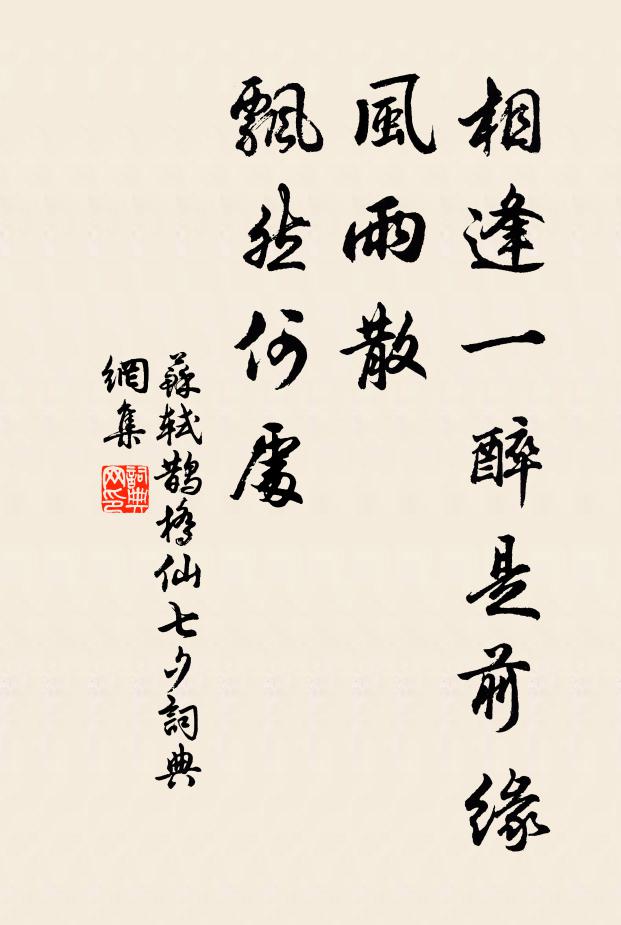 相逢一醉是前緣
風雨散
飄然何處
蘇軾鵲橋仙七夕詞典
網集
詞典
网印